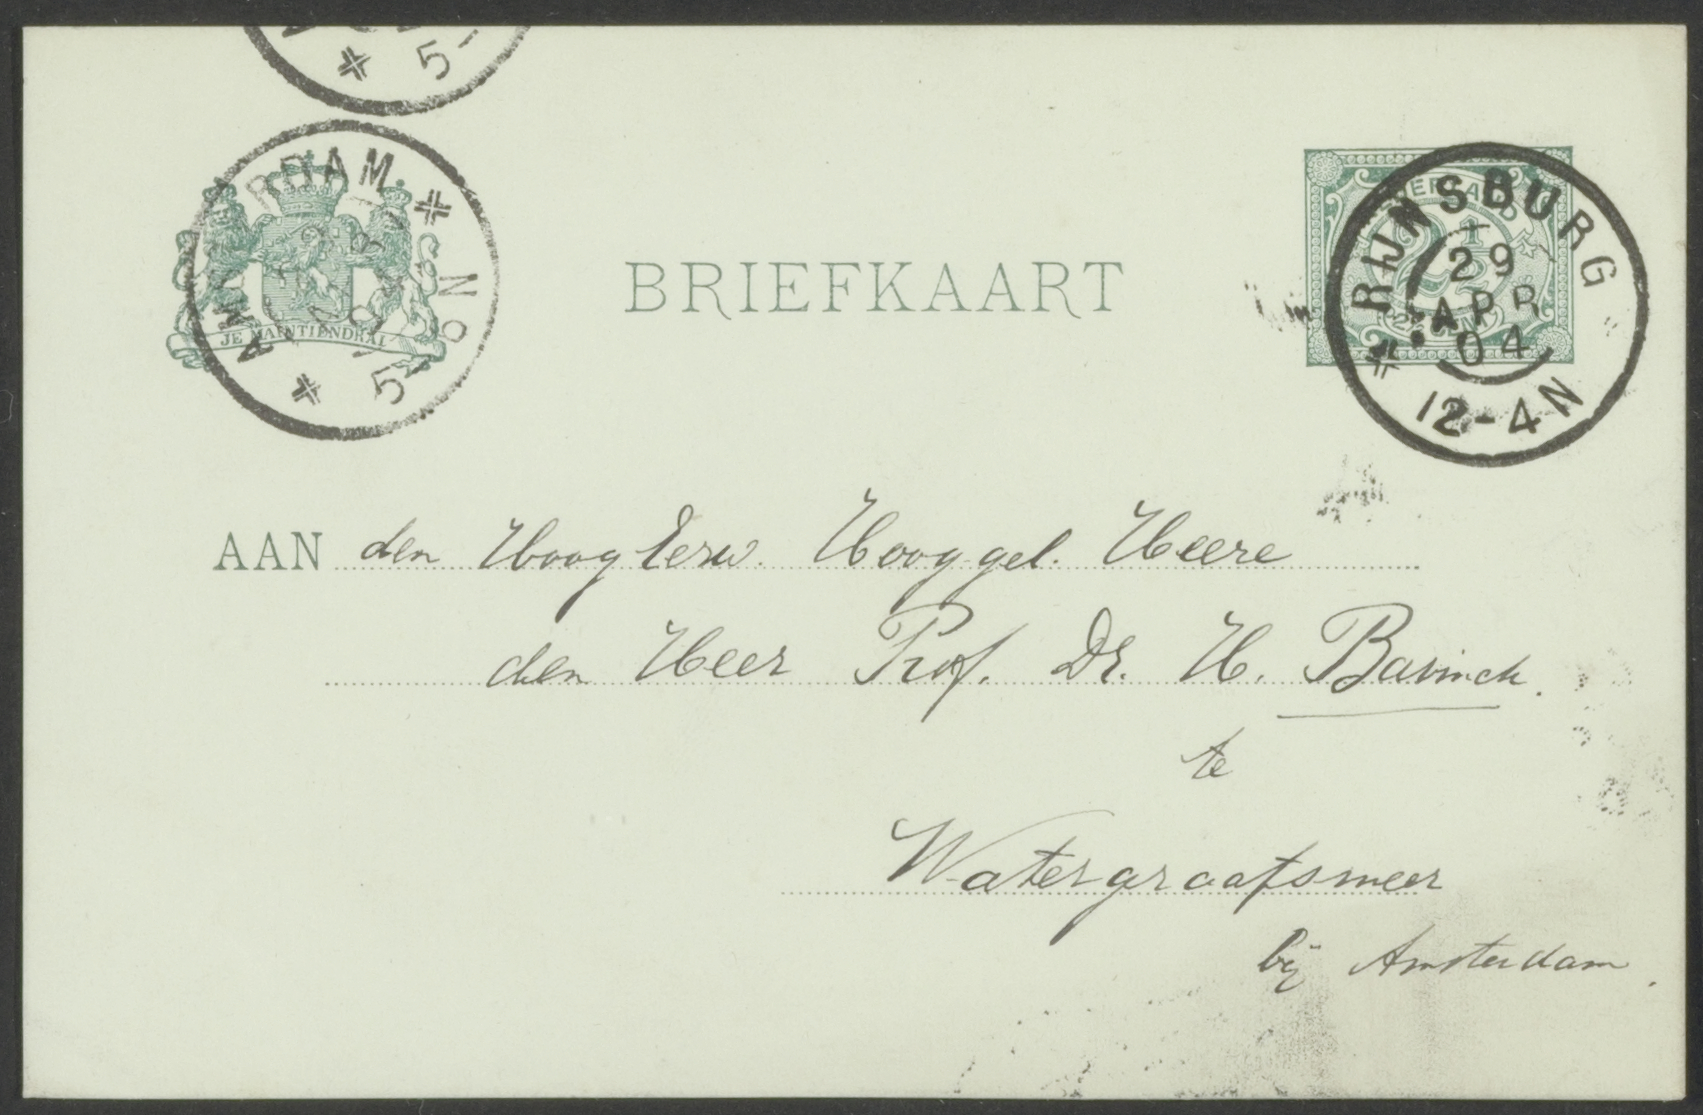 5-
AM RDAM. N°
5-
JE MAINTIENDRAI
BRIEFKAART
NEDERLAND
2½
RIJNSBURG
29
APR
04
12-4N
AAN den HoogEerw. Hooggel. Heere
den Heer Prof. Dr. H. Bavinck.
te
Watergraafsmeer
bij Amsterdam.